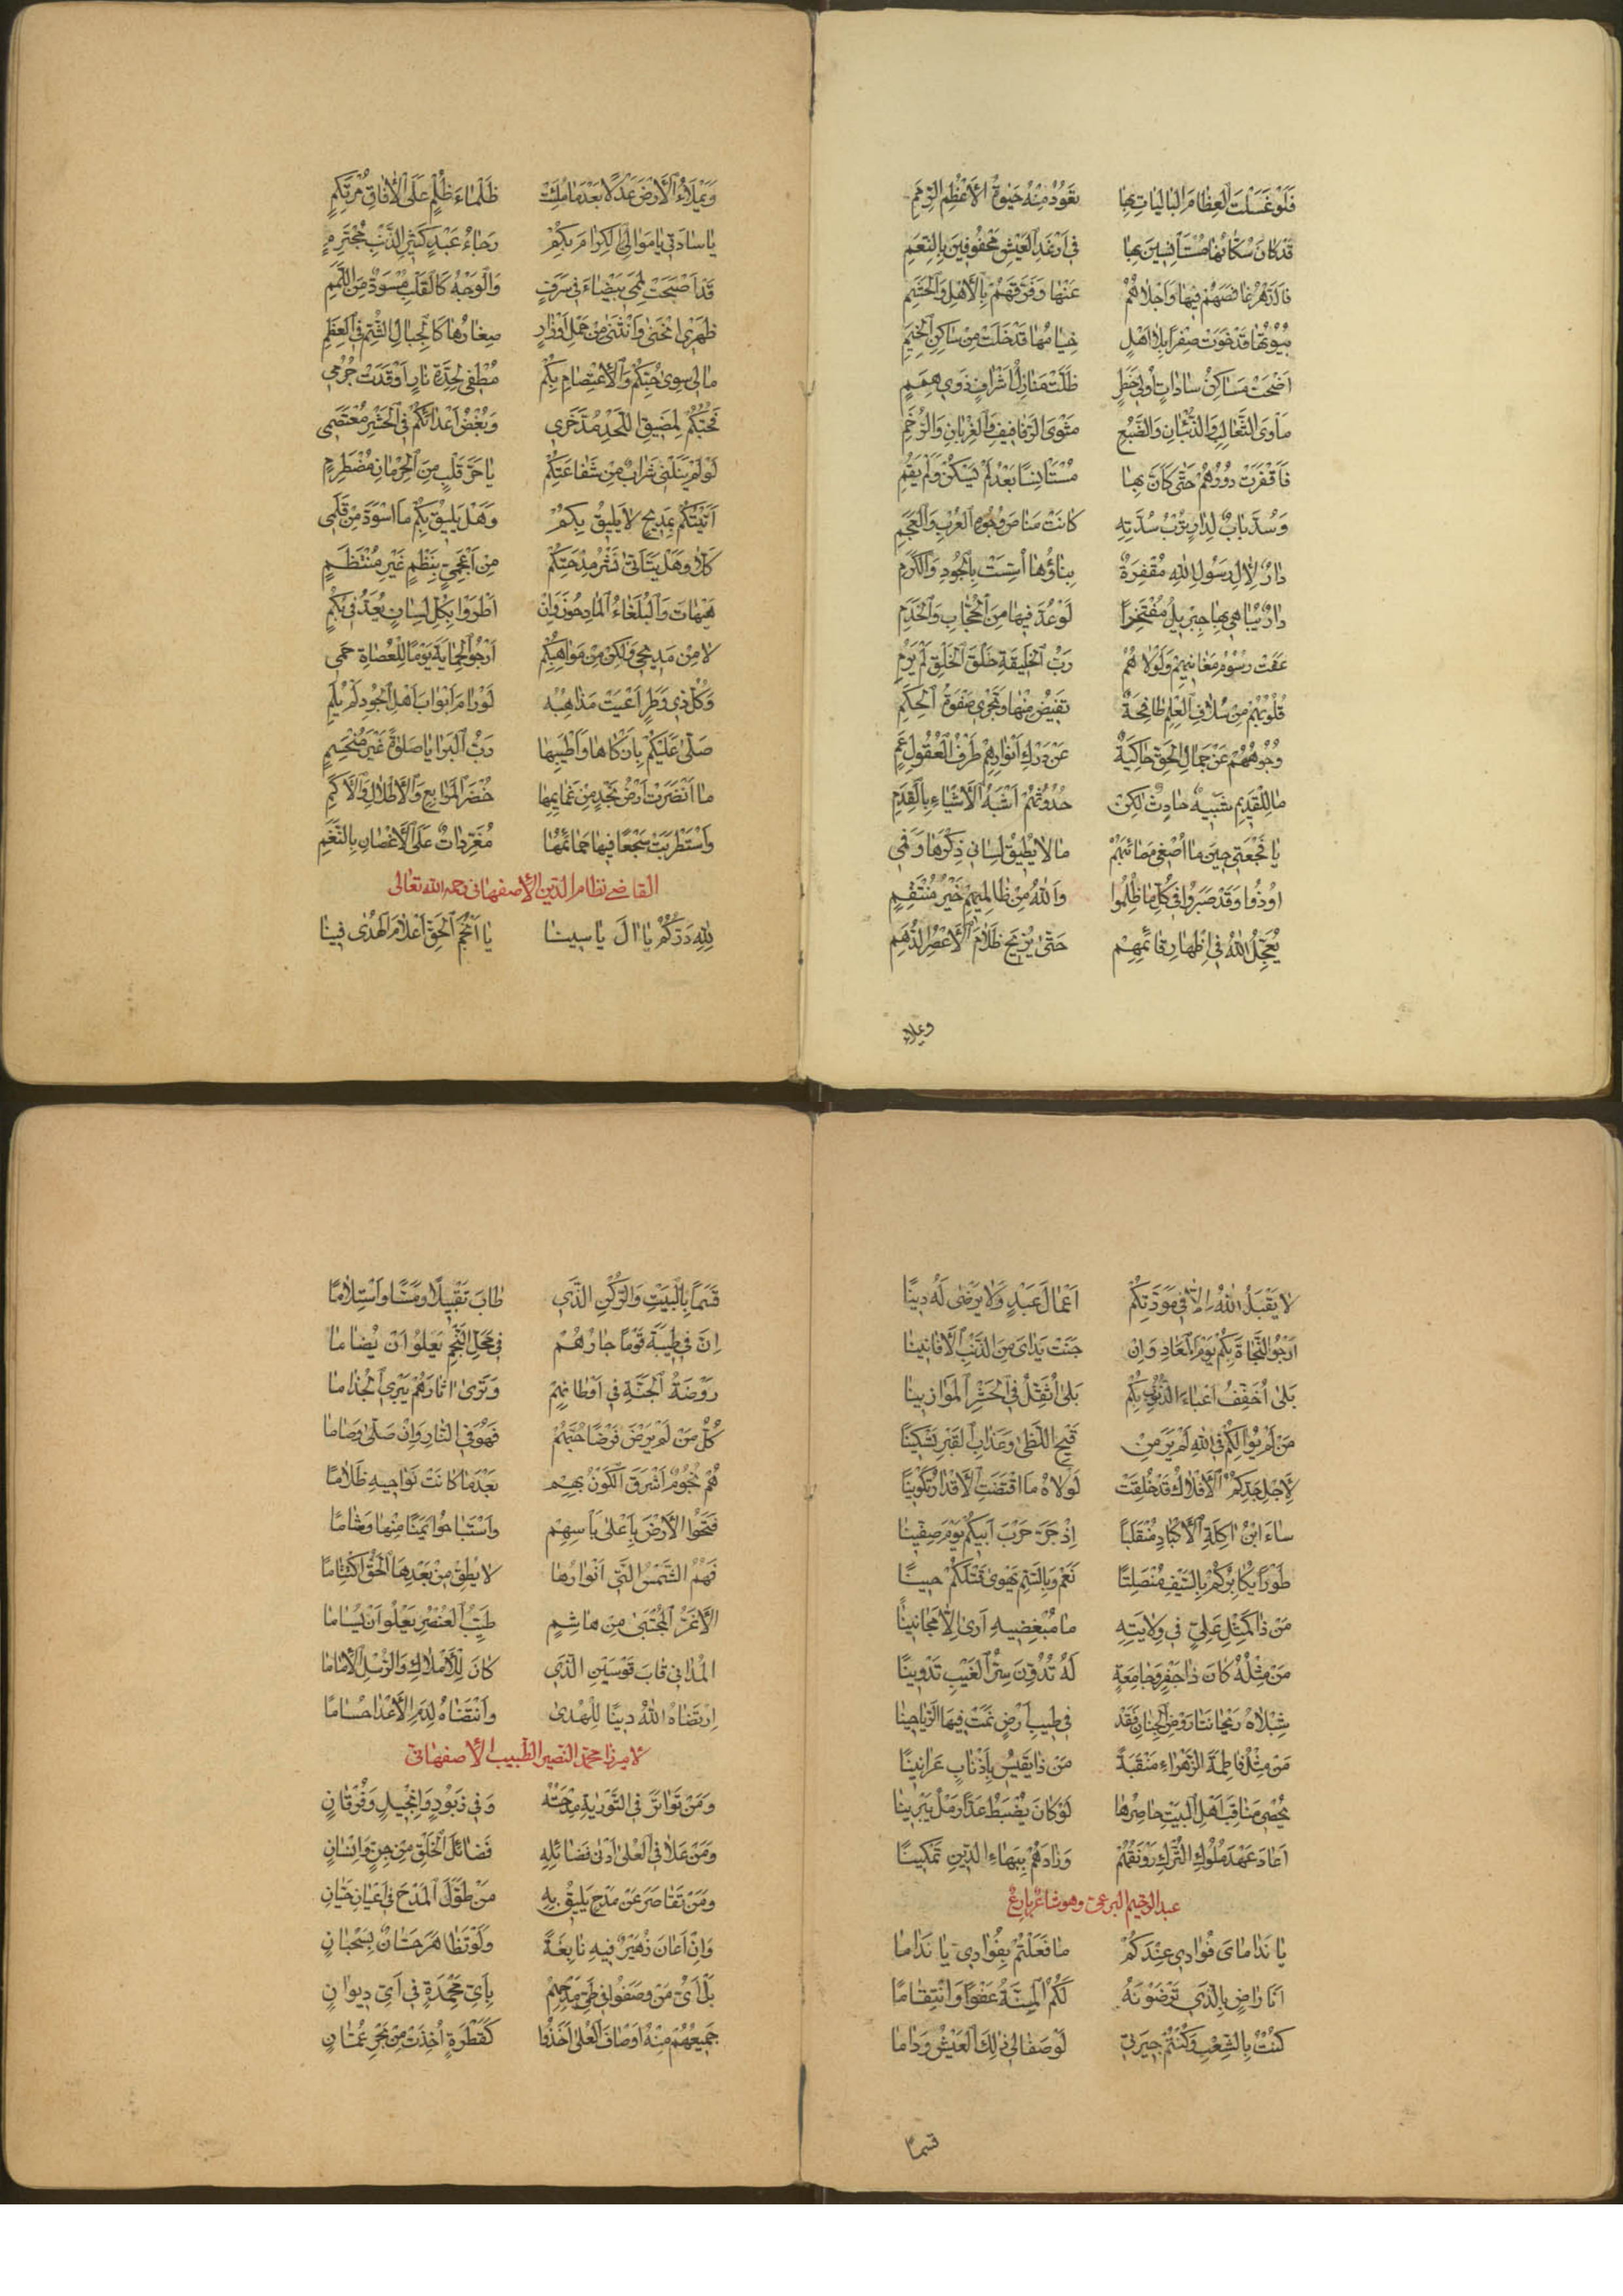 فَلَوْ غَسَلْتَ الْعِظَامَ الْبَالِيَاتِ بِهَا تَعُودُ مِنْهُ حَيٰوةُ الْأَعْظُمِ الرِّمَمِ
قَدْ كَانَ سُكَّانُهَا مُسْتَأْنِسِينَ بِهَا فِي أَرْغَدِ الْعَيْشِ مَحْفُوفِينَ بِالنِّعَمِ
فَالدَّهْرُ غَافَصَهُمْ فِيهَا وَأَجْلَاهُمْ عَنْهَا وَفَرَّقَهُمْ بِالْأَهْلِ وَالْحَشَمِ
بُيُوتُهَا قَدْ خَوَتْ صِفْرًا بِلَا أَهْلٍ خِيَامُهَا قَدْ خَلَتْ مِنْ سَاكِنِ الْخِيَمِ
أَضْحَتْ مَسَاكِنُ سَادَاتٍ أُولِي خَطَرٍ ظَلَّتْ مَنَازِلُ أَشْرَافٍ ذَوِي هِمَمٍ
مَأْوَى الثَّعَالِبِ وَالذُّئْبَانِ وَالضَّبُعِ مَثْوَى الرَّفَافِيفِ وَالْغِرْبَانِ وَالرُّخَمِ
فَأَقْفَرَتْ دُورُهُمْ حَتَّى كَأَنَّ بِهَا مُسْتَأْنِسًا بَعْدُ لَمْ يَسْكُنْ وَلَمْ يَقُمِ
وَسُدَّ بَابٌ لِدَارٍ تُرْبُ سُدَّتِهِ كَانَتْ مَنَاصَ وُجُوهِ الْعُرْبِ وَالْعَجَمِ
دَارٌ لِآلِ رَسُولِ اللهِ مُقْفِرَةٌ بِنَاؤُهَا أُسِّسَتْ بِالْجُودِ وَالْكَرَمِ
دَارٌ يُبَاهِي بِهَا جِبْرِيلُ مُفْتَخِرًا لَوْ عُدَّ فِيهَا مِنَ الْحُجَّابِ وَالْخَدَمِ
عَفَتْ رُسُومُ مَغَانِيهِمْ وَلَوْلَاهُمْ رَبُّ الْخَلِيقَةِ خَلْقَ الْخَلْقِ لَمْ يَرُمِ
قُلُوبُهُمْ مِنْ سُلَافِ الْعِلْمِ طَافِحَةٌ تَفِيضُ مِنْهَا وَتَجْرِي صَفْوَةُ الْحِكَمِ
وُجُوهُهُمْ عَنْ جَمَالِ الْحَقِّ حَاكِيَةٌ عَنْ دَرْكِ أَنْوَارِهِمْ طَرْفُ الْعُقُولِ عَمِ
مَا لِلْقَدِيمِ شَبِيهٌ حَادِثٌ لٰكِنْ حُدُوثُهُمْ أَشْبَهُ الْأَشْيَاءِ بِالْقِدَمِ
يَا فَجْعَتِي حِينَ مَا أُصْغِي مَصَائِبَهُمْ مَا لَا يُطِيقُ لِسَانِي ذِكْرَهَا وَفَمِي
أُوذُوا وَقَدْ صَبَرُوا فِي كُلِّ مَا ظُلِمُوا وَاللهُ مِنْ ظَالِمِيهِمْ خَيْرُ مُنْتَقِمِ
يُعَجِّلُ اللهُ فِي إِظْهَارِ قَائِمِهِمْ حَتَّى يُزِيحَ ظَلَامَ الْأَعْصُرِ الدُّهَمِ
وَيملاء
وَيَمْلَاءُ الْأَرْضَ عَدْلًا بَعْدَ مَا مُلِئَتْ ظَلْمَاءَ ظُلْمٍ عَلَى الْآفَاقِ مُرْتَكِمِ
يَا سَادَتِي يَا مَوَالِيَّ الْكِرَامَ بِكُمْ رَجَاءُ عَبْدٍ كَثِيرِ الذَّنْبِ مُجْتَرِمِ
قَدْ أَصْبَحَتْ لِمَّتِي بَيْضَاءَ فِي سَرَفٍ وَالْوَجْهُ كَالْقَلْبِ مُسْوَدٌّ مِنَ اللَّمَمِ
ظَهْرِي انْحَنَى وَانْثَنَى مِنْ حَمْلِ أَوْزَارٍ صِغَارُهَا كَالْجِبَالِ الشُّمِّ فِي الْعِظَمِ
مَا لِي سِوَى حُبِّكُمْ وَالْاِعْتِصَامِ بِكُمْ مُطْفِي لِحِدَّةِ نَارٍ أَوْقَدَتْ جُرُمِي
فَحُبُّكُمْ لِمَضِيقِ اللَّحْدِ مُدَّخَرِي وَبُغْضُ أَعْدَائِكُمْ فِي الْحَشْرِ مُعْتَصَمِي
لَوْ لَمْ يَنَلْنِي شَرَابٌ مِنْ شَفَاعَتِكُمْ يَا حَرَّ قَلْبٍ مِنَ الْحِرْمَانِ مُضْطَرِمِ
أَتَيْتُكُمْ بِمَدِيحٍ لَا يَلِيقُ بِكُمْ وَهَلْ يَلِيقُ بِكُمْ مَا اسْوَدَّ مِنْ قَلَمِي
كَلَّا وَهَلْ يَتَأَتَّى نَشْرُ مِدْحَتِكُمْ مِنْ أَعْجَمِيٍّ بِنَظْمٍ غَيْرِ مُنْتَظَمِ
هَيْهَاتَ وَالْبُلَغَاءُ الْمَادِحُونَ وَإِنْ أَطْرَوْا بِكُلِّ لِسَانٍ يُعَدُّ فِي بُكْمِ
لَا مِنْ مَدِيحِي وَلٰكِنْ مِنْ مَوَاهِبِكُمْ أَرْجُو الْحِمَايَةَ يَوْمًا لِلْعُصَاةِ حَمِي
وَكُلُّ ذِي وَطَرٍ أَعْيَتْ مَذَاهِبُهُ لَوْ رَامَ أَبْوَابَ أَهْلِ الْجُودِ لَمْ يُلَمِ
صَلَّى عَلَيْكُمْ بِأَزْكَاهَا وَأَطْيَبِهَا رَبُّ الْبَرَايَا صَلٰوةً غَيْرَ مُنْحَسِمِ
مَا أَنْضَرَتْ أَرْضُ نَجْدٍ مِنْ غَمَايِمِهَا خُضْرَ الْمَرَابِعِ وَالْأَطْلَالِ وَالْأَكَمِ
وَاسْتَطْرَبَتْ سَجْعًا فِيهَا حَمَائِمُهَا مُغَرِّدَاتٌ عَلَى الْأَغْصَانِ بِالنَّغَمِ
القاضي نظام الدين الأصفهاني رحمه الله تعالى
لِلّٰهِ دَرُّكُمُ يَا آلَ يَاسِينَا يَا أَنْجُمَ الْحَقِّ أَعْلَامَ الْهُدَى فِينَا
لَا يَقْبَلُ اللهُ إِلَّا فِي مَوَدَّتِكُمْ أَعْمَالَ عَبْدٍ وَلَا يَرْضَى لَهُ دِينًا
أَرْجُو النَّجَاةَ بِكُمْ يَوْمَ الْمَعَادِ وَإِنْ جَنَتْ يَدَايَ مِنَ الذَّنْبِ الْأَفَانِينَا
بَلَى أُخَفِّفُ أَعْبَاءَ الذُّنُوبِ بِكُمْ بَلَى أُثَقِّلُ فِي الْحَشْرِ الْمَوَازِينَا
مَنْ لَمْ يُوَالِكُمْ فِي اللهِ لَمْ يَرَ مِنْ قَيْحِ اللَّظَى وَعَذَابِ الْقَبْرِ تَسْكِينًا
لِأَجْلِ جَدِّكُمُ الْأَفْلَاكُ قَدْ خُلِقَتْ لَوْلَاهُ مَا اقْتَضَتِ الْأَقْدَارُ تَكْوِينًا
سَاءَ ابْنُ آكِلَةِ الْأَكْبَادِ مُنْقَلَبًا إِذْ جَرَّ حَرْبَ أَبِيكُمْ يَوْمَ صِفِّينَا
طَوْرًا يُكَابِرُكُمْ بِالسَّيْفِ مُنْصَلِتًا نَعَمْ وَبِالسَّمِّ يَهْوَى قَتْلَكُمْ حِينًا
مَنْ ذَا كَمِثْلِ عَلِيٍّ فِي وِلَايَتِهِ مَا مُبْغِضِيهِ أَرَى إِلَّا مَجَانِينًا
مَنْ مِثْلُهُ كَانَ ذَا جَفْرٍ وَجَامِعَةٍ لَهُ تُدُوِّنَ سِرُّ الْغَيْبِ تَدْوِينًا
شِبْلَاهُ رَيْحَانَتَا رَوْضِ الْجِنَانِ فَقَدْ فِي طِيبِ أَرْضٍ نَمَتْ فِيهَا الرَّيَاحِينَا
مَنْ مِثْلُ فَاطِمَةَ الزَّهْرَاءِ مَنْقَبَةً مَنْ ذَا يَقِيسُ بِأَذْنَابٍ عَرَانِينًا
يُحْصِي مَنَاقِبَ أَهْلِ الْبَيْتِ حَاصِرُهَا لَوْ كَانَ يُضْبَطُ عَدًّا رَمْلُ يَبْرِينَا
أَعَادَ عَهْدَ مُلُوكِ التُّرْكِ رَوْنَقُهُمْ وَزَادَهُمْ بِبَهَاءِ الدِّينِ تَمْكِينًا
عبد الرحيم البرعي وهو شاعر بارع
يَا نَدَامَايَ فُؤَادِي عِنْدَكُمْ مَا فَعَلْتُمْ بِفُؤَادِي يَا نَدَامَا
أَنَا رَاضٍ بِالَّذِي تَرْضَوْنَهُ لَكُمُ الْمِنَّةُ عَفْوًا وَانْتِقَامًا
كُنْتُ بِالشِّعْبِ وَكُنْتُمْ جِيرَتِي لَوْ صَفَا لِي ذٰلِكَ الْعَيْشُ وَدَامَا
قسمًا
قَسَمًا بِالْبَيْتِ وَالرُّكْنِ الَّذِي طَابَ تَقْبِيلًا وَمَسًّا وَاسْتِلَامًا
إِنَّ فِي طَيْبَةَ قَوْمًا جَارُهُمْ فِي مَحَلِّ النَّجْمِ يَعْلُو أَنْ يُضَامَا
رَوْضَةُ الْجَنَّةِ فِي أَوْطَانِهِمْ وَتَرَى آثَارَهُمْ يَبْرِي الْجُذَامَا
كُلُّ مَنْ لَمْ يَرَ فَرْضًا حُبَّهُمْ فَهُوَ فِي النَّارِ وَإِنْ صَلَّى وَصَامَا
هُمْ نُجُومٌ أَشْرَقَ الْكَوْنُ بِهِمْ بَعْدَ مَا كَانَتْ نَوَاحِيهِ ظَلَامًا
فَتَحُوا الْأَرْضَ بِأَعْلَى بَأْسِهِمْ وَاسْتَبَاحُوا يَمَنًا مِنْهَا وَشَامًا
فَهُمُ الشَّمْسُ الَّتِي أَنْوَارُهَا لَا يُطِقْ مِنْ بَعْدِهَا الْحَقُّ اكْتِتَامًا
الْأَغَرُّ الْمُجْتَبَى مِنْ هَاشِمٍ طَيِّبُ الْعُنْصُرِ يَعْلُو أَنْ يُسَامَا
الْمُدَانِي قَابَ قَوْسَيْنِ الَّذِي كَانَ لِلْأَمْلَاكِ وَالرُّسْلِ الْإِمَامَا
اِرْتَضَاهُ اللهُ دِينًا لِلْهُدَى وَانْتَضَاهُ لِدَمِ الْأَعْدَا حُسَامًا
لا ميرزا محمد النصير الطبيب الأصفهاني
وَمَنْ تَوَاتَرَ فِي التَّوْرَيةِ مِدْحَتُهُ وَفِي زَبُورٍ وَإِنْجِيلٍ وَفُرْقَانِ
وَمَنْ عَلَا فِي الْعُلَى أَدْنَى فَضَائِلِهِ فَضَائِلَ الْخَلْقِ مِنْ جِنٍّ وَإِنْسَانِ
وَمَنْ تَقَاصَرَ عَنْ مَدْحٍ يَلِيقُ بِهِ مَنْ طَوَّلَ الْمَدْحَ فِي أَعْيَانِ حَيَّانِ
وَإِنْ أَعَانَ زُهَيْرٌ فِيهِ نَابِغَةً وَلَوْ تَظَاهَرَ حَسَّانٌ بِسَحْبَانِ
بَلْ أَيُّ مَنْ وَصَفُوا فِي طَيِّ مَدْحِهِمُ بِأَيِّ مَحْمِدَةٍ فِي أَيِّ دِيوَانِ
جَمِيعُهُمْ مِنْهُ أَوْصَافَ الْعُلَى أَخَذُوا كَقَطْرَةٍ أُخِذَتْ مِنْ بَحْرِ عُمَّانِ